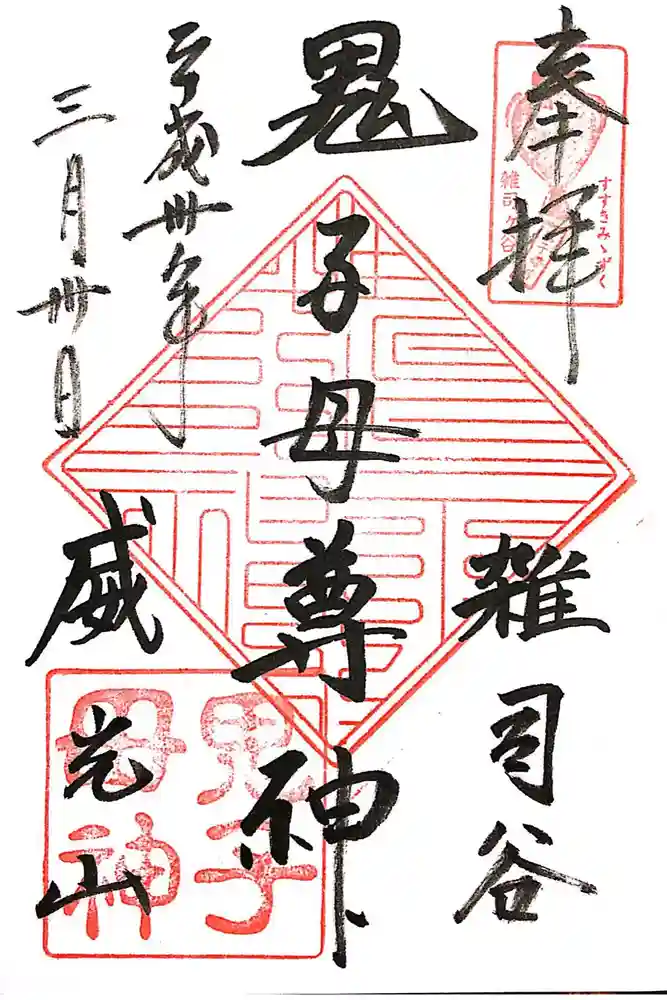 奉拝
雑司ヶ谷
すすきみゝずく
雑司谷
鬼子母尊神
平成卅年
三月卅日
威光山
鬼子
母神